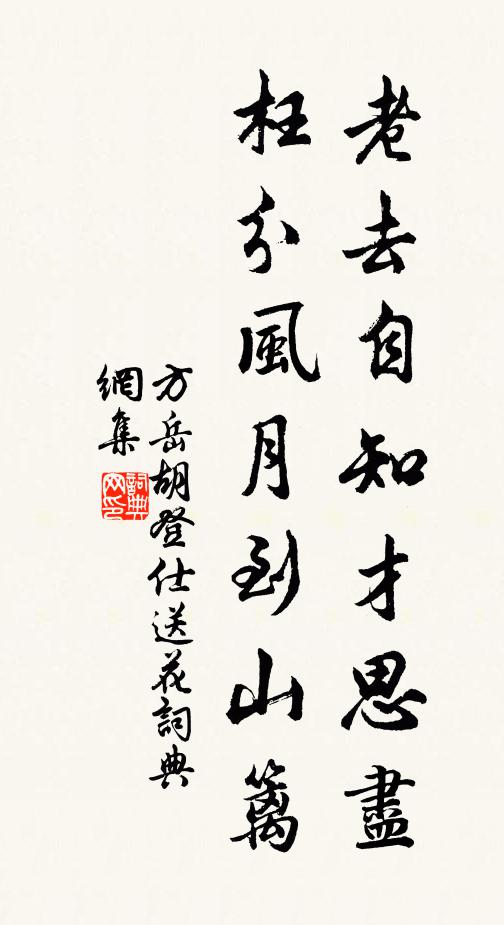 老去自知才思盡
枉分風月到山籬
方岳胡登仕送花詞典
網集
詞典網印